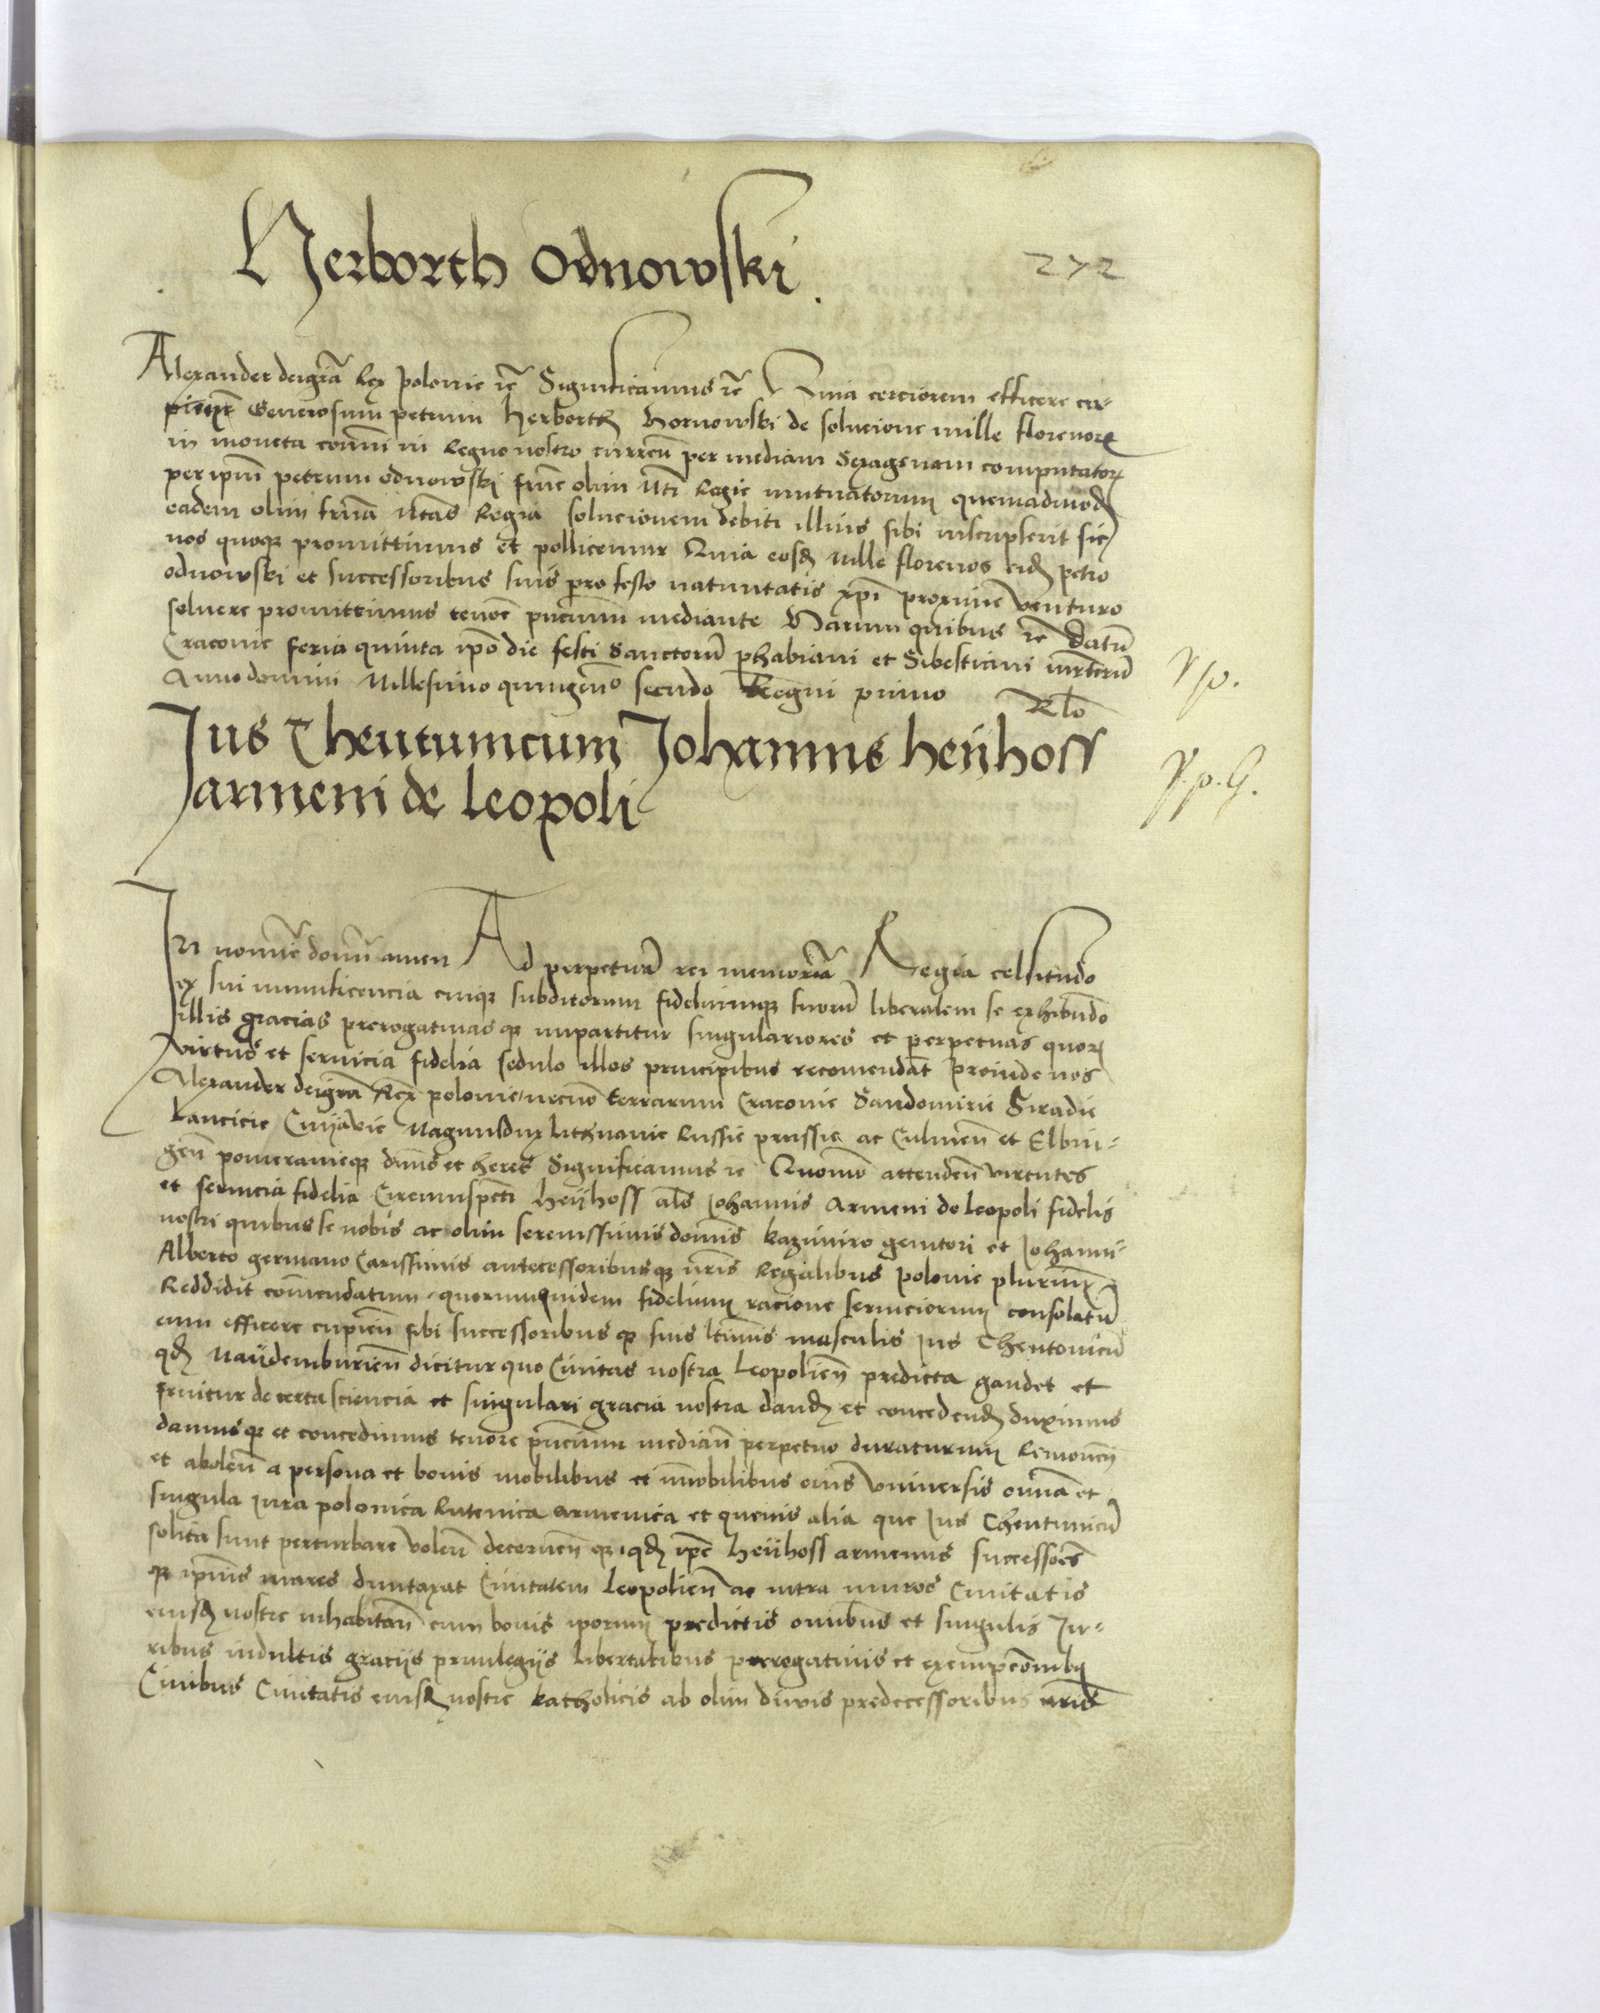 Herborth Odnowski
272
Alexander dei gra Rex polonie rc Significamus rc Quia cerciorem efficere cu-
pientes Generosum petrum Herborth Hornowski de solucione mille florenorum
in moneta comuni in Regno nostro curren per mediam sexagenam computatorum
per ipm petrum odnowski frne olim Mti Regie mutuatorum quemadmodum
eadem olim frna Mtas Regia solucionem debiti illius sibi inscripserit sic
nos quoque promittimus et pollicemur Quia eosdem Mille florenos eidem petro
odnowski et successoribus suis pro festo natiuitatis xpi proxime venturo
soluere promittimus tenore pncium mediante Harum quibus rc Datum
Cracouie feria quinta ipso die festi Sanctorum phabiani et Sibestiani mrtirum
Anno domini Millesimo quingeno secundo Regni primo
Rlo
p p.
Jus Theutumcum Johannis heiihoff
Jarmeni de Leopoli
p. p. G.
In nomine domini amen Ad perpetuam rei memoriam Regia celsitudo
ex sui munificencia cuique subditorum fideliumque suorum liberalem se exhibendo
illis gracias prerogatiuasque impartitur singulariores et perpetuas quorum
virtus et seruicia fidelia sedulo illos principibus recomendant Proinde nos
Alexander dei gra Rex polonie necnon terrarum Cracouie Sandomirie Siradie
Lancicie Cuyavie Magnusdux Lithuanie Russie prussie ac Culmen et Elbin-
gen pomeranieque dnus et heres Significamus rc Quomodo attenden virtutes
et seruicia fidelia Circumspecti heiihoff als Johannis Armeni de Leopoli fidelis
nostri quibus se nobis ac olim serenissimis dominis Kazimiro genitori et Johanni
Alberto germano Carissimis antecessoribusque nris Regalibus polonie plurimum
Reddidit comendatum quorumquidem fidelium racione seruiciorum consolatum
eum efficere cupien sibi successoribusque suis ltimis masculis Jus Theutonicum
quod Maiidemburien dicitur quo Ciuitas nostra Leopolien predicta gaudet et
fruitur de certa sciencia et singulari gracia nostra dandum et concedendum duximus
damusque et concedimus tenore pncium median perpetuo duraturum Remouen
et abolen a persona et bonis mobilibus et immobilibus eius vniuersis omnia et
singula iura polonica Rutenica armenica et queuis alia que Jus Theutunicum
solita sunt perturbare volen decernen que quod ipse heiihoff armenus successores
que ipsius mares duntaxat Ciuitatem Leopolien ac intra muros Ciuitatis
eiusdem nostre inhabitan cum bonis ipsorum predictis omibus et singulis Ju-
ribus indultis graciis priuilegiis libertatibus prerogatiuis et exempcionibus
Ciuibus Ciuitatis eiusdem nostre katholicis ab olim diuis predecessoribus nris